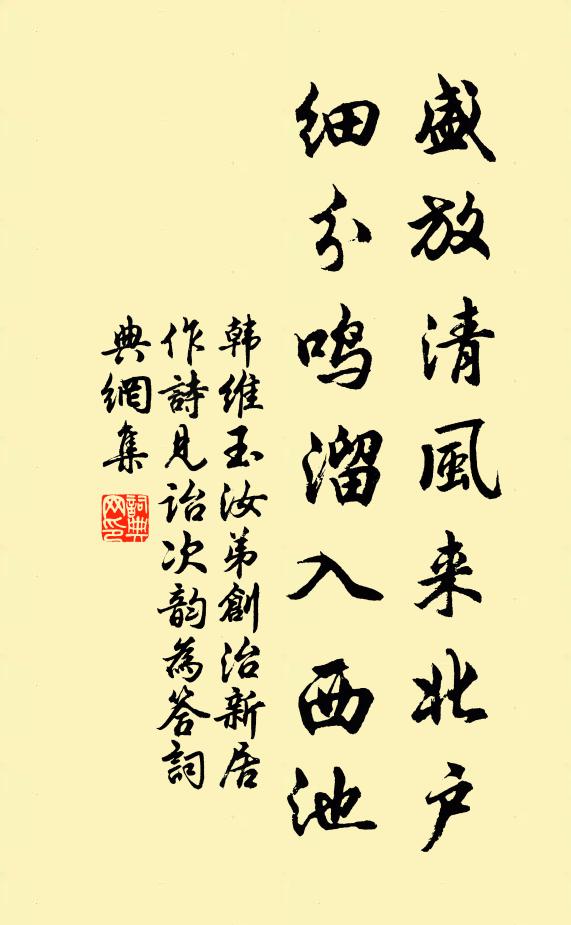 盛放清風来北户
细分鸣溜入西池
韩維玉汝弟創治新居
作詩見詒次韵為答詞
典網集
詞典网印